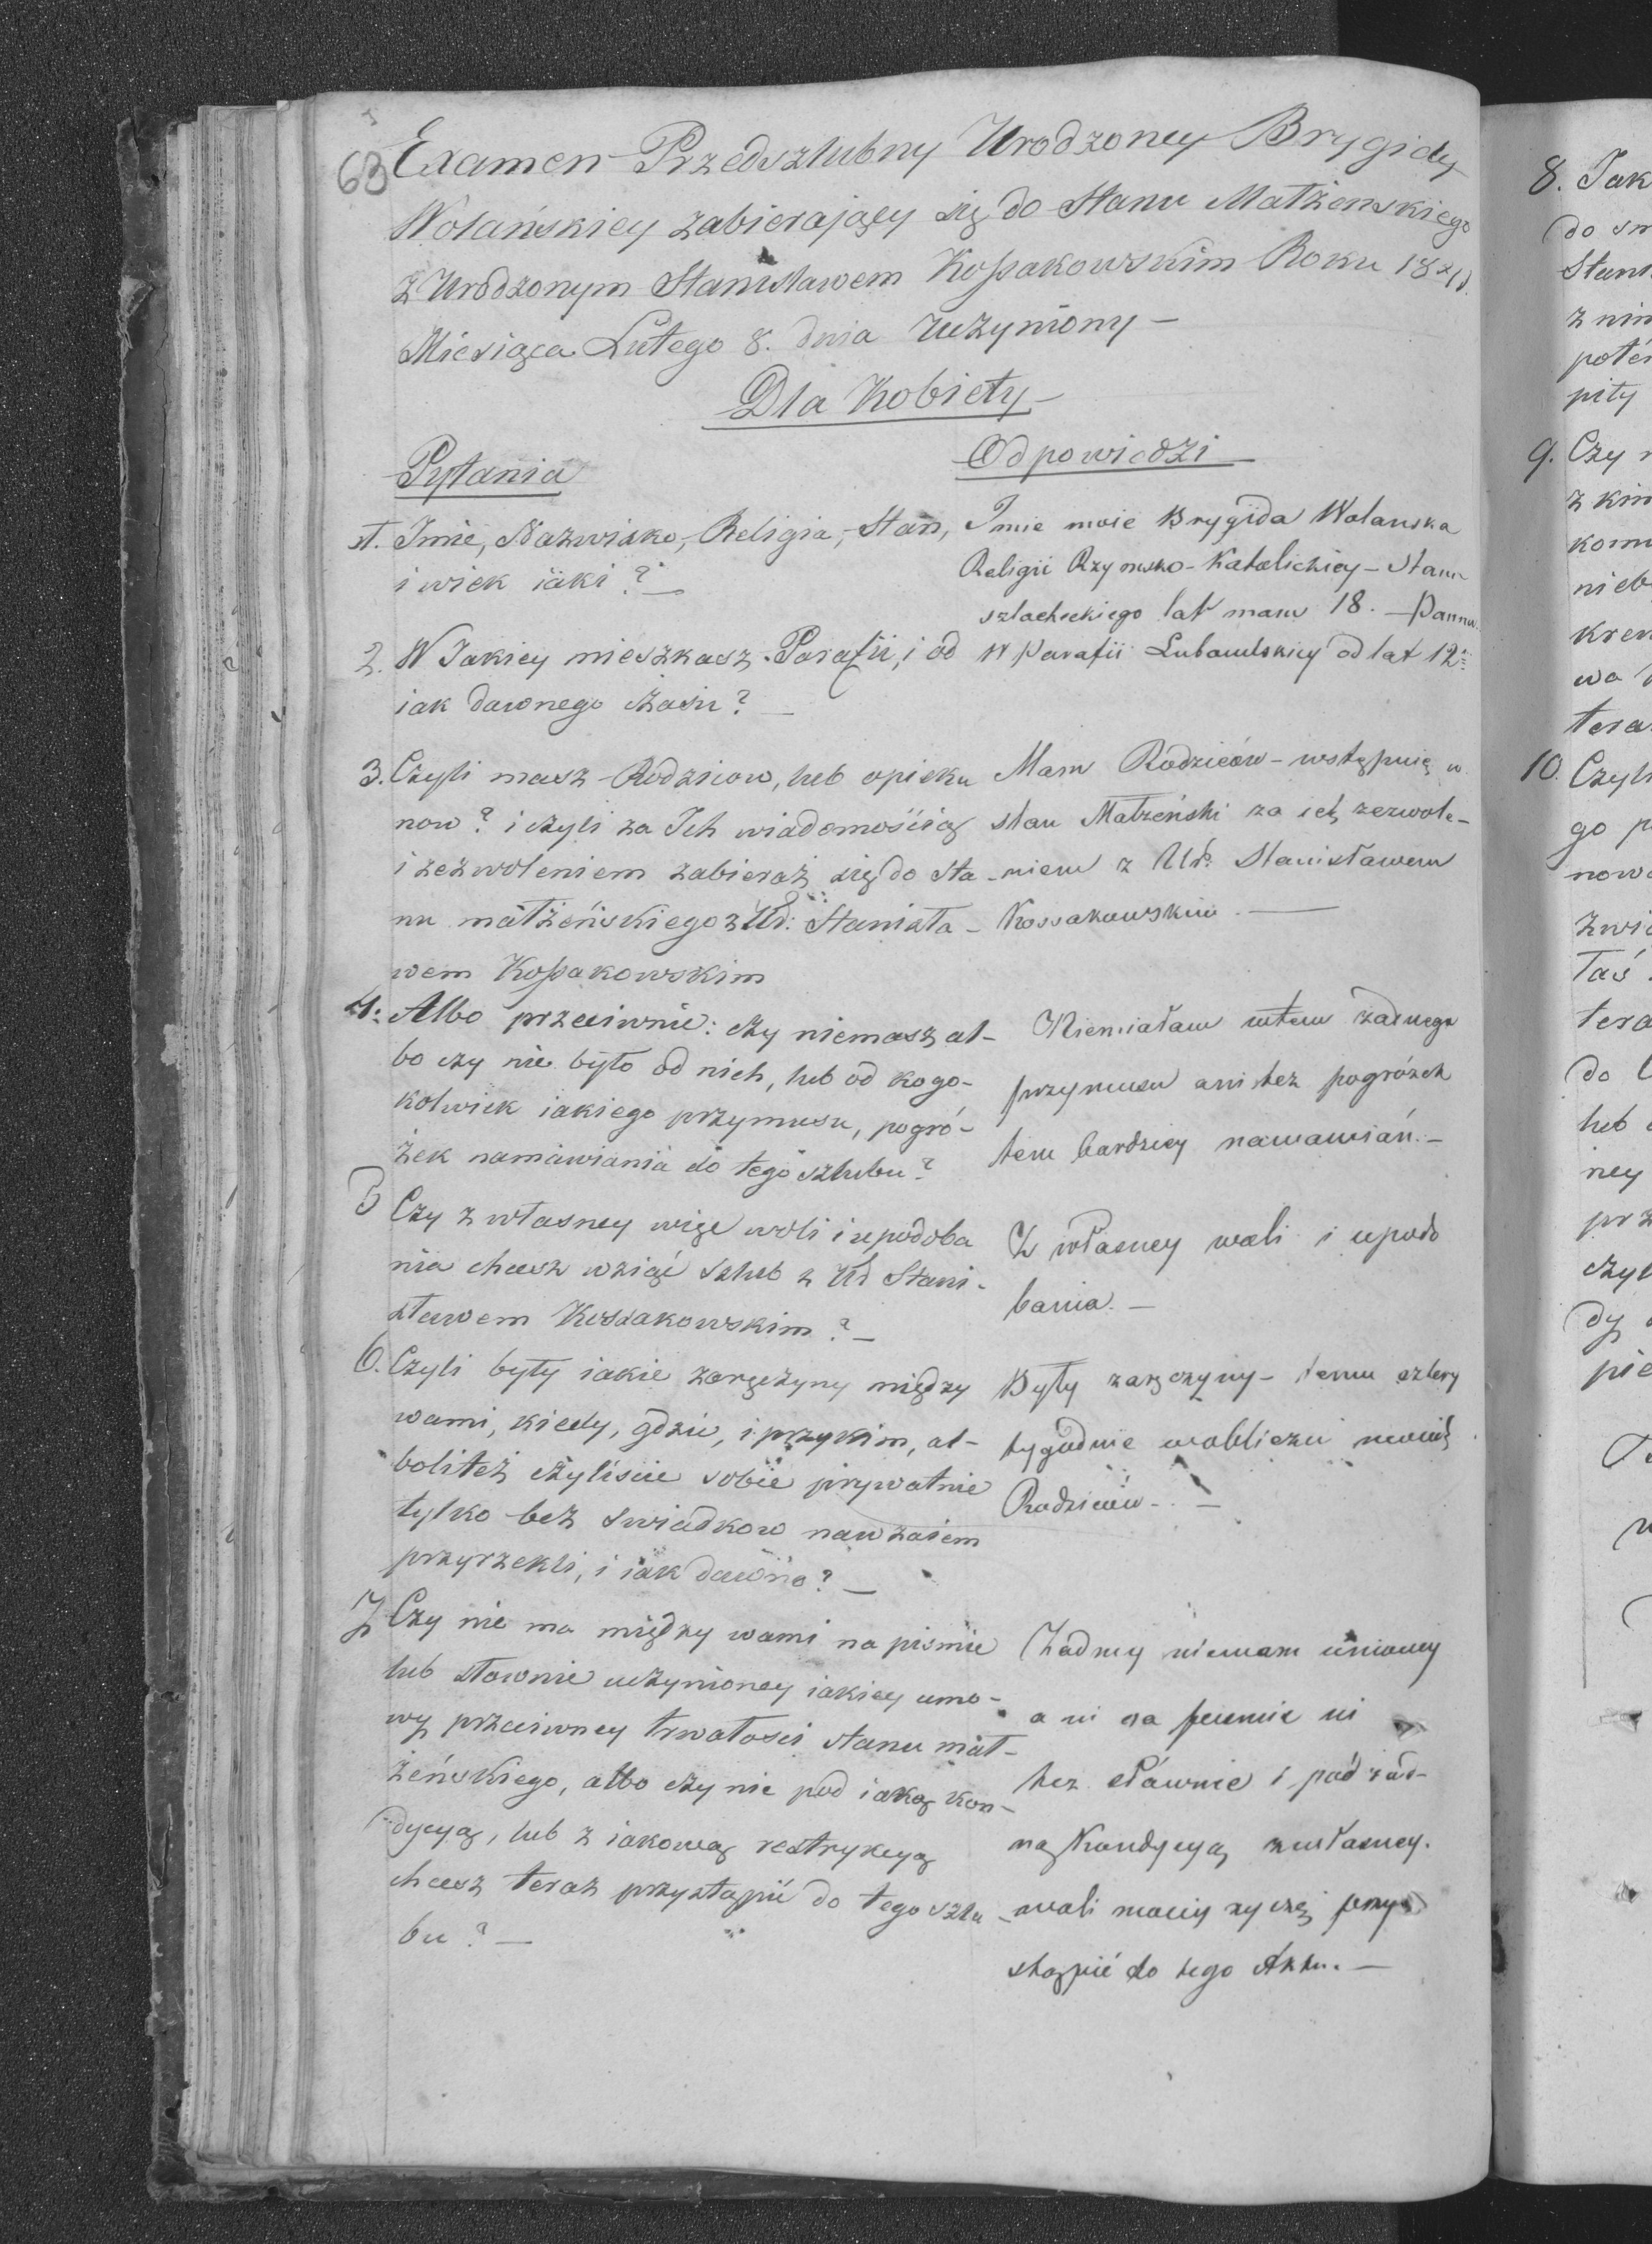 63
Examen Przedszlubny Urodzoney Brygidy
Wolańskiey zabierającey się do Stanu Małżenskiego
z Urodzonym Stanisławem Kossakowskim Roku
Miesiąca Lutego 8. dnia uczyniony —
Dla Kobiety —
Pytania
Odpowiedzi —
1. Jmie, Nazwisko, Religia, Stan,
i wiek iaki? —
Jmie moie Brygida Wolanska
Religii Rzymsko-Katolickiey — Stanu
szlacheckiego lat mam 18. — Panna.
2. W Jakiey mieszkasz Parafii, i od
iak dawnego czasu? —
W Parafii Lubawlskiey od lat 12
3. Czyli masz Rodzicow, lub opieku
now? i czyli za Jch wiadomością
i zezwoleniem zabierasz się do Sta-
nu małżeńskiego z Ur: Stanisła-
wem Kossakowskim
Mam Rodziców — wstępuię w
stan Małżeński za ich zezwole-
niem z Ur: Stanisławem
Kossakowskim. —
4. Albo przeciwnie: czy niemasz al-
bo czy nie było od nich, lub od kogo-
kolwiek iakiego przymusu, pogró-
żek namawiania do tego szlubu?
Niemiałam żadnego
przymusu ani też pogróżek
tem bardziey namawiań. —
5 Czy z własney więc woli i upodoba
nia chcesz wziąć szlub z Ur Stani-
sławem Kossakowskim? —
Z własney woli i upodo
bania. —
6. Czyli były iakie zaręczyny między
wami, kiedy, gdzie, i przykim, al-
boliteż czyliście sobie prywatnie
tylko bez swiadkow nawzaiem
przyrzekli, i iak dawno? —
Były zaręczyny — temu cztery
tygodnie wobliczu moich
Rodziców. —
7 Czy nie ma między wami na pismie
lub słownie uczynioney iakiey umo-
wy przeciwney trwałosci stanu mał-
żeńskiego, albo czy nie pod iaką kon-
dycyą, lub z iakową restrykcyą
chcesz teraz przystąpić do tego szlu
bu? —
Żadney niemam umowy
a ni na pismie ni
tez słównie i pód żad-
ną Kondycyą zwłasney.
woli moiey życzę przy
stąpić do tego Aktu. —
8. Jak
do
Stani
z nim
pity
9. Czy
z kim
10. Czyli
go
nowo
do
lub
ney